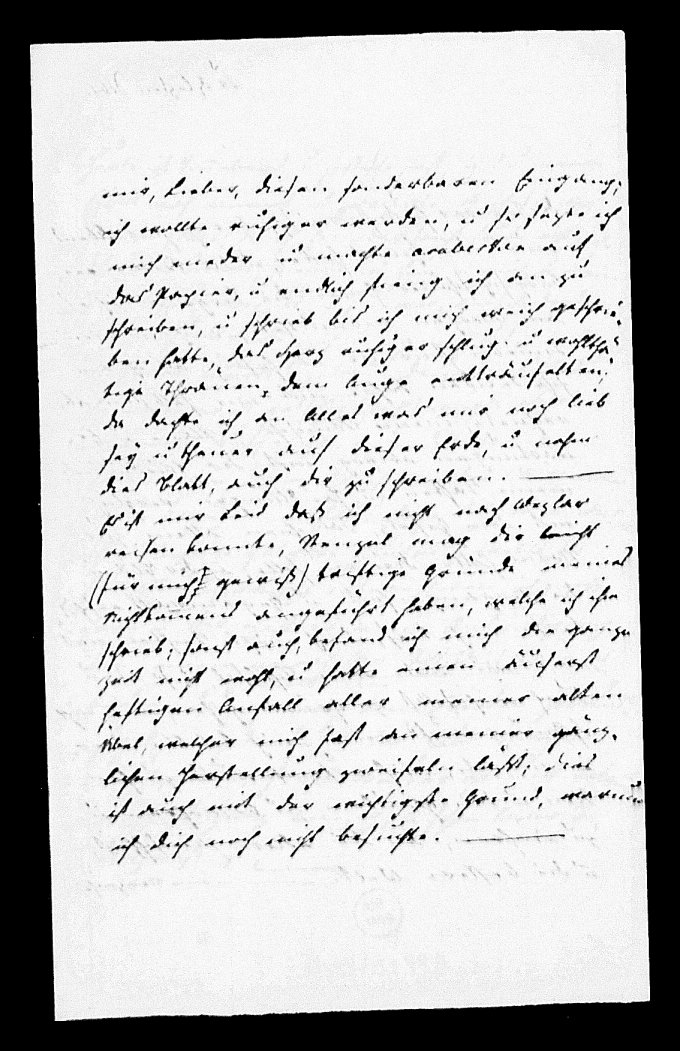 mir, Lieber, diesen sonderbaren Eingang;
ich wollte ruhiger werden, u so sezte ich
mich nieder u machte arabesken auf
das Papier, u endlich fieng ich an zu
schreiben, u schrieb bis ich mich weich geschrie-
ben hatte, das Herz ruhiger schlug u wohlthä-
tige Thränen dem Auge entträufelten;
da dachte ich an Alles was mir noch lieb
sey u theuer auf dieser Erde, u nahm
dies Blatt, auch dir zu schreiben. —
Es ist mir Leid daß ich nicht nach Wezlar
reisen konnte, Menzel mag dir leicht
(für mich gewiß) triftige Gründe meines
Nichtkommens angeführt haben, welche ich ihm
schrieb; sonst auch, befand ich mich die ganze
zeit nicht wohl, u hatte einen äuserst
heftigen Anfall aller meiner alten
Übel, welcher mich fast an meiner gänz-
lichen Herstellung zweifeln läßt; dies
ist auch mit der wichtigste Grund, warum
ich dich noch nicht besuchte. —